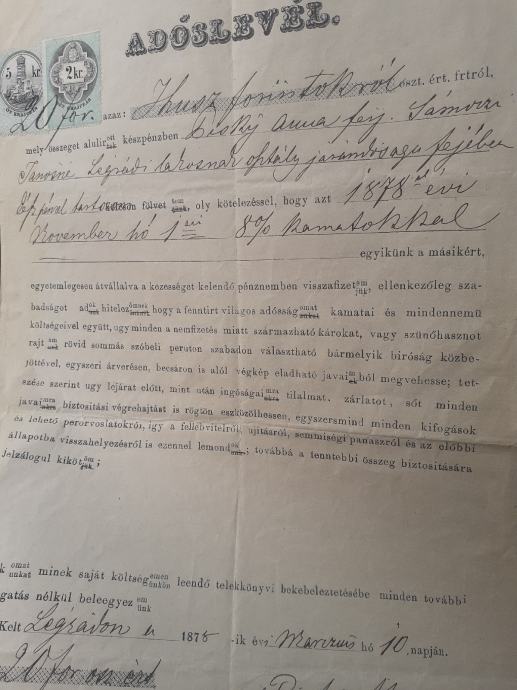 ADÓSLEVÉL.
5 kr.
2 kr.
20 for. azaz: Husz forintokról öszt. ért. frtról,
mely összeget alulirott készpénzben Anna férj.
Jánosné Légrádi lakosnak osztály járandósága fejében
fölvettem oly kötelezéssel, hogy azt 1878 évi
November hó 1 8% kamatokkal
egyikünk a másikért,
egyetemlegesen átvállalva a kezességet kelendő pénznemben visszafizet öm jük, ellenkezőleg sza-
badságot ad ok unk hitelez ömnek hogy a fenntirt világos adósság omat unkat kamatai és mindennemű
költségeivel együtt, ugy minden a nemfizetés miatt származható károkat, vagy szünőhasznot
rajt am unk rövid sommás szóbeli peruton szabadon választható bármelyik biróság közbe-
jöttével, egyszeri árverésen, becsáron is alól végkép eladható javai m ból megvehesse; tet-
szése szerint ugy lejárat előtt, mint után ingóságai mra tilalmat, zárlatot, sőt minden
javai mra biztositási végrehajtást is rögtön eszközölhessen, egyszersmind minden kifogások
és lehető perorvoslatokról, igy a fellebvitelről, ujitásról, semmiségi panaszról és az előbbi
állapotba visszahelyezésről is ezennel lemond ok unk; továbbá a fenntebbi összeg biztositására
Jelzálogul kiköt öm jük;
k omat unkat minek saját költség emen ünkön leendő telekkönyvi bekebeleztetésébe minden további
gatás nélkül beleegyez em ünk
Kelt Légrádon 1878 -ik évi Marczius hó 10 napján.
20 for